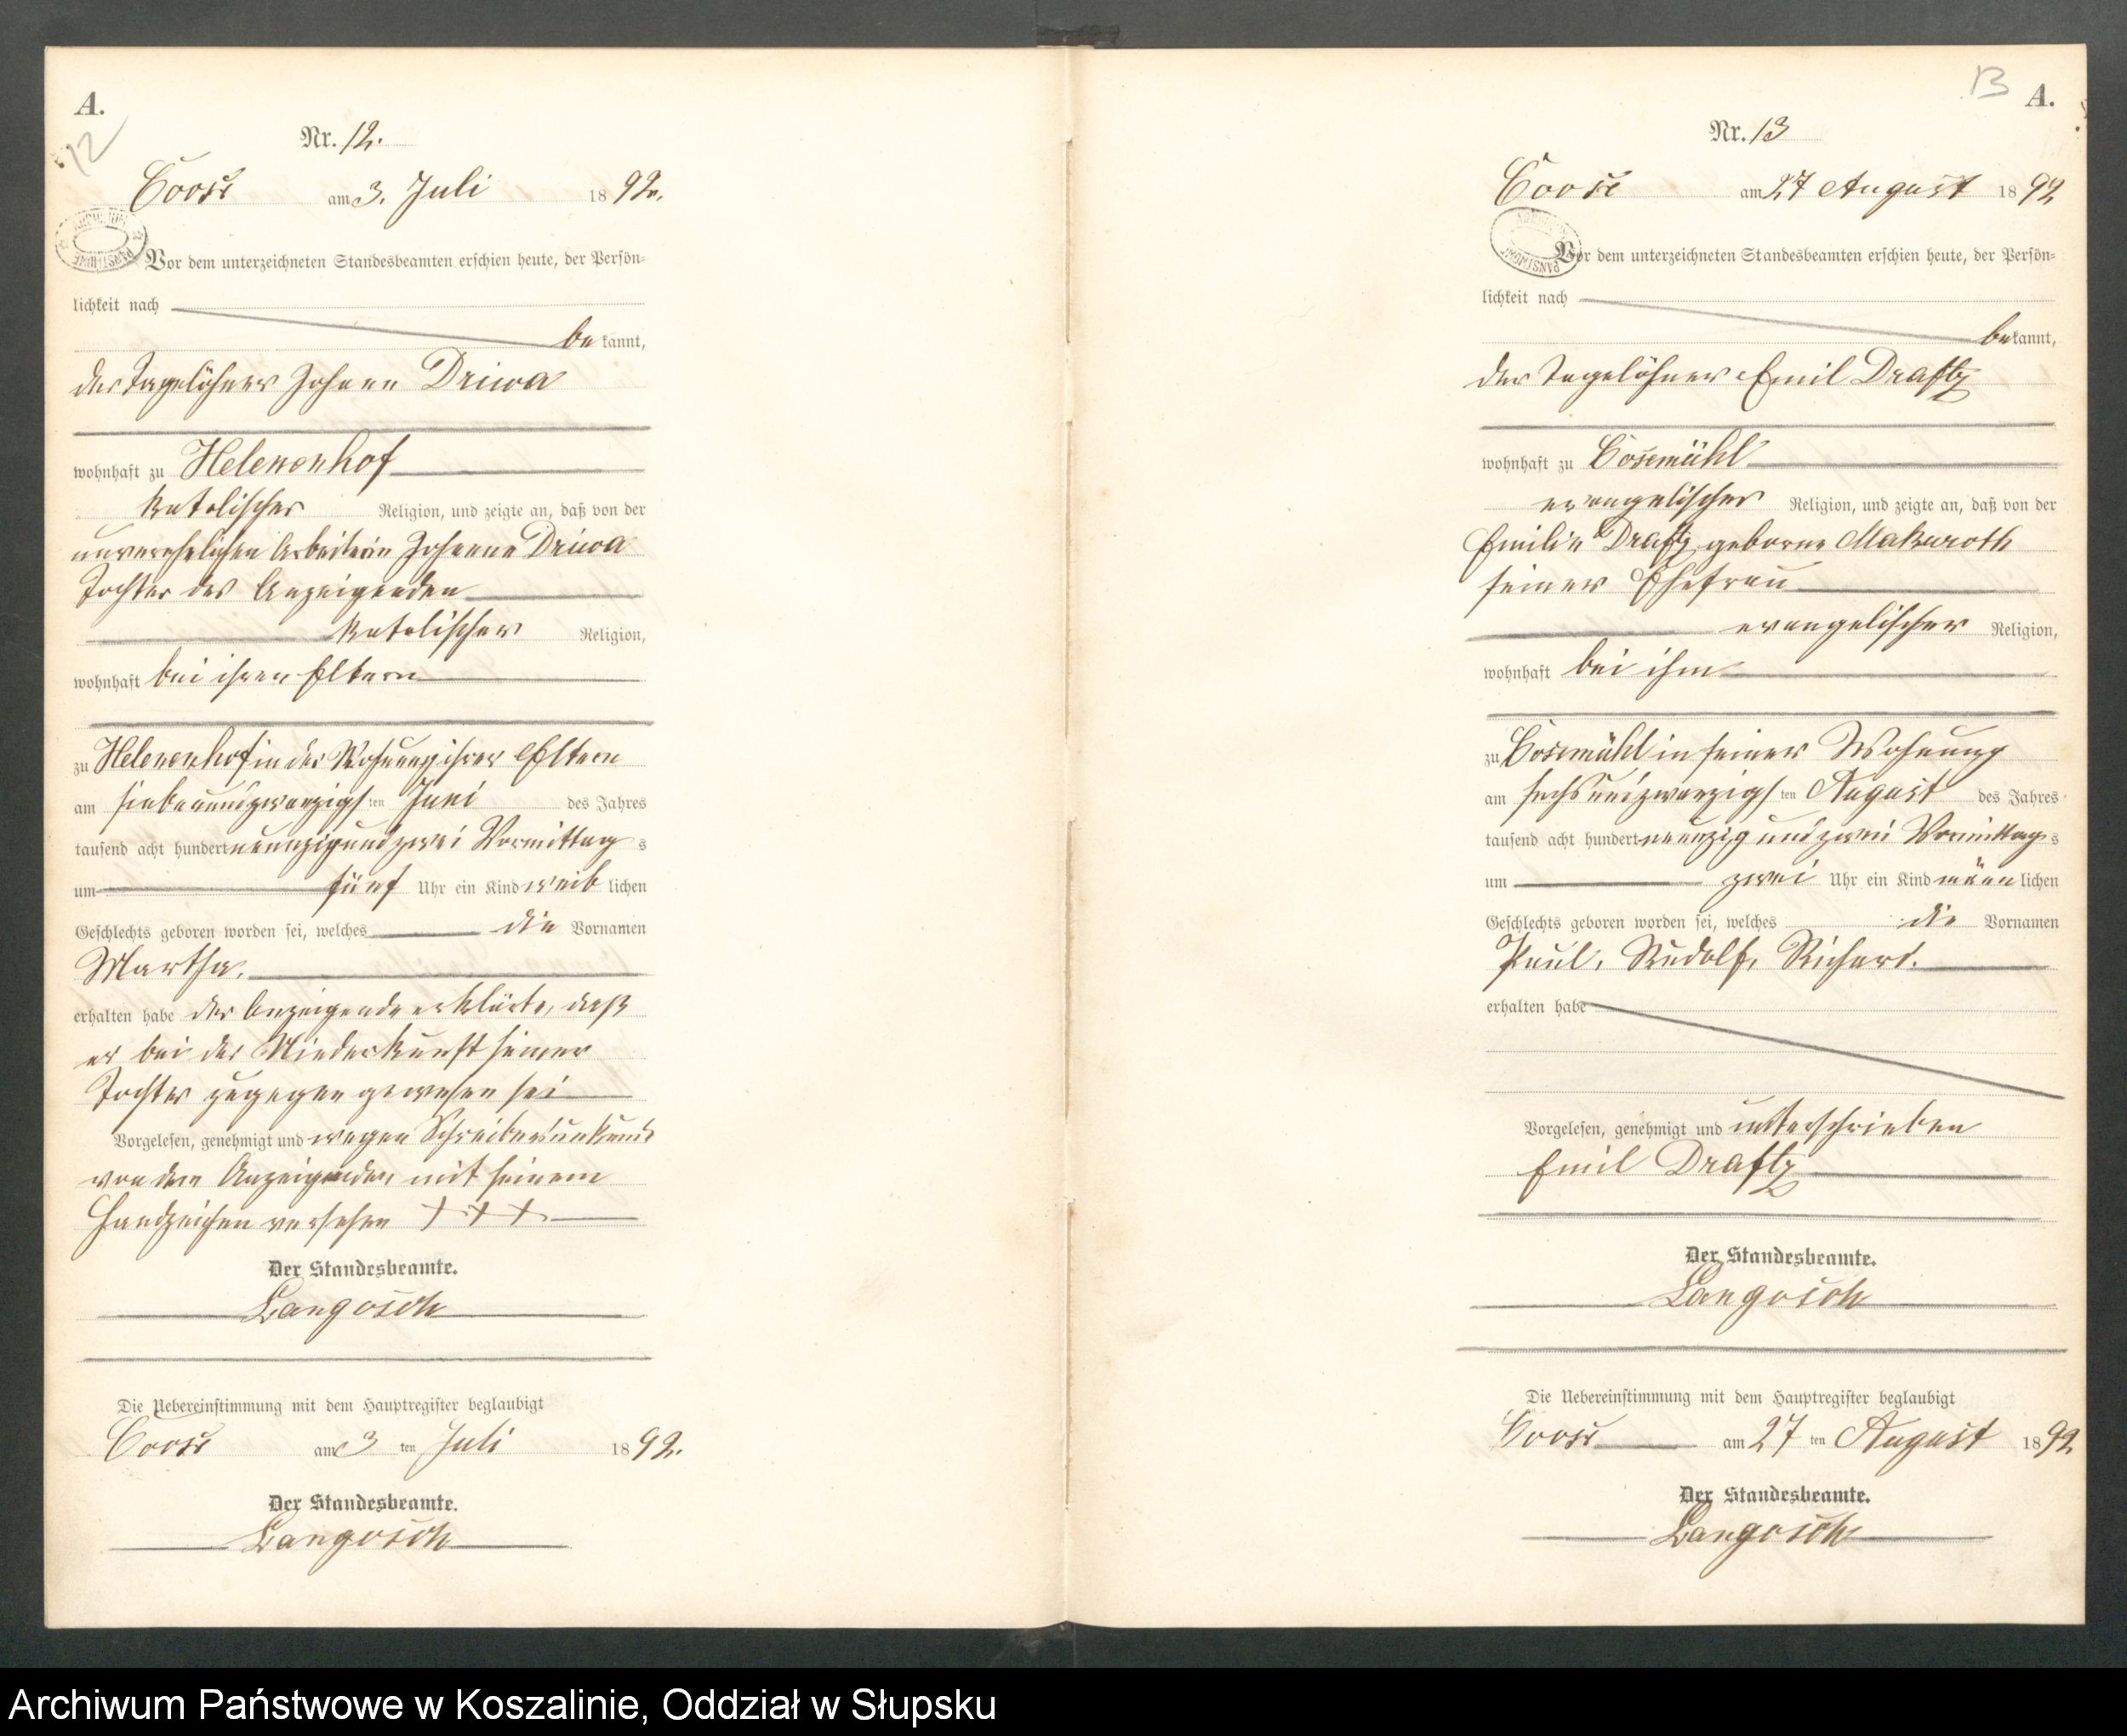 A.
12
Nr. 12.
Coose am 3. Juli 1892.
Vor dem unterzeichneten Standesbeamten erschien heute, der Persön=
lichkeit nach
bekannt,
der Tagelöhner Johann Driwa
wohnhaft zu Helenenhof
katolischer Religion, und zeigte an, daß von der
unverehelichten Arbeiterin Johanna Driwa
Tochter des Anzeigenden
katolischer Religion,
wohnhaft bei ihren Eltern
zu Helenenhof in der Wohnung ihrer Eltern
am siebenundzwanzigsten Juni des Jahres
tausend acht hundert neunzig und zwei Vormittags
um fünf Uhr ein Kind weiblichen
Geschlechts geboren worden sei, welches die Vornamen
Martha.
erhalten habe der Anzeigende erklärte, daß
er bei der Niederkunft seiner
Tochter zugegen gewesen sei
Vorgelesen, genehmigt und wegen Schreibensunkunde
von dem Anzeigenden mit seinem
Handzeichen versehen + + +
Der Standesbeamte.
Langosch
Die Uebereinstimmung mit dem Hauptregister beglaubigt
Coose am 3 ten Juli 1892.
Der Standesbeamte.
Langosch
13 A.
Nr. 13
Coose am 27 August 1892
Vor dem unterzeichneten Standesbeamten erschien heute, der Persön=
lichkeit nach
bekannt,
der Tagelöhner Emil Draftz
wohnhaft zu Cosemühl
evangelischer Religion, und zeigte an, daß von der
Emilie Draftz geborne Makuroth
seiner Ehefrau
evangelischer Religion,
wohnhaft bei ihm
zu Cosemühl in seiner Wohnung
am sechsundzwanzigsten August des Jahres
tausend acht hundert neunzig und zwei Vormittags
um zwei Uhr ein Kind männlichen
Geschlechts geboren worden sei, welches die Vornamen
Paul, Rudolf, Richard.
erhalten habe
Vorgelesen, genehmigt und unterschrieben
Emil Draftz
Der Standesbeamte.
Langosch
Die Uebereinstimmung mit dem Hauptregister beglaubigt
Coose am 27 ten August 1892
Der Standesbeamte.
Langosch
Archiwum Państwowe w Koszalinie, Oddział w Słupsku